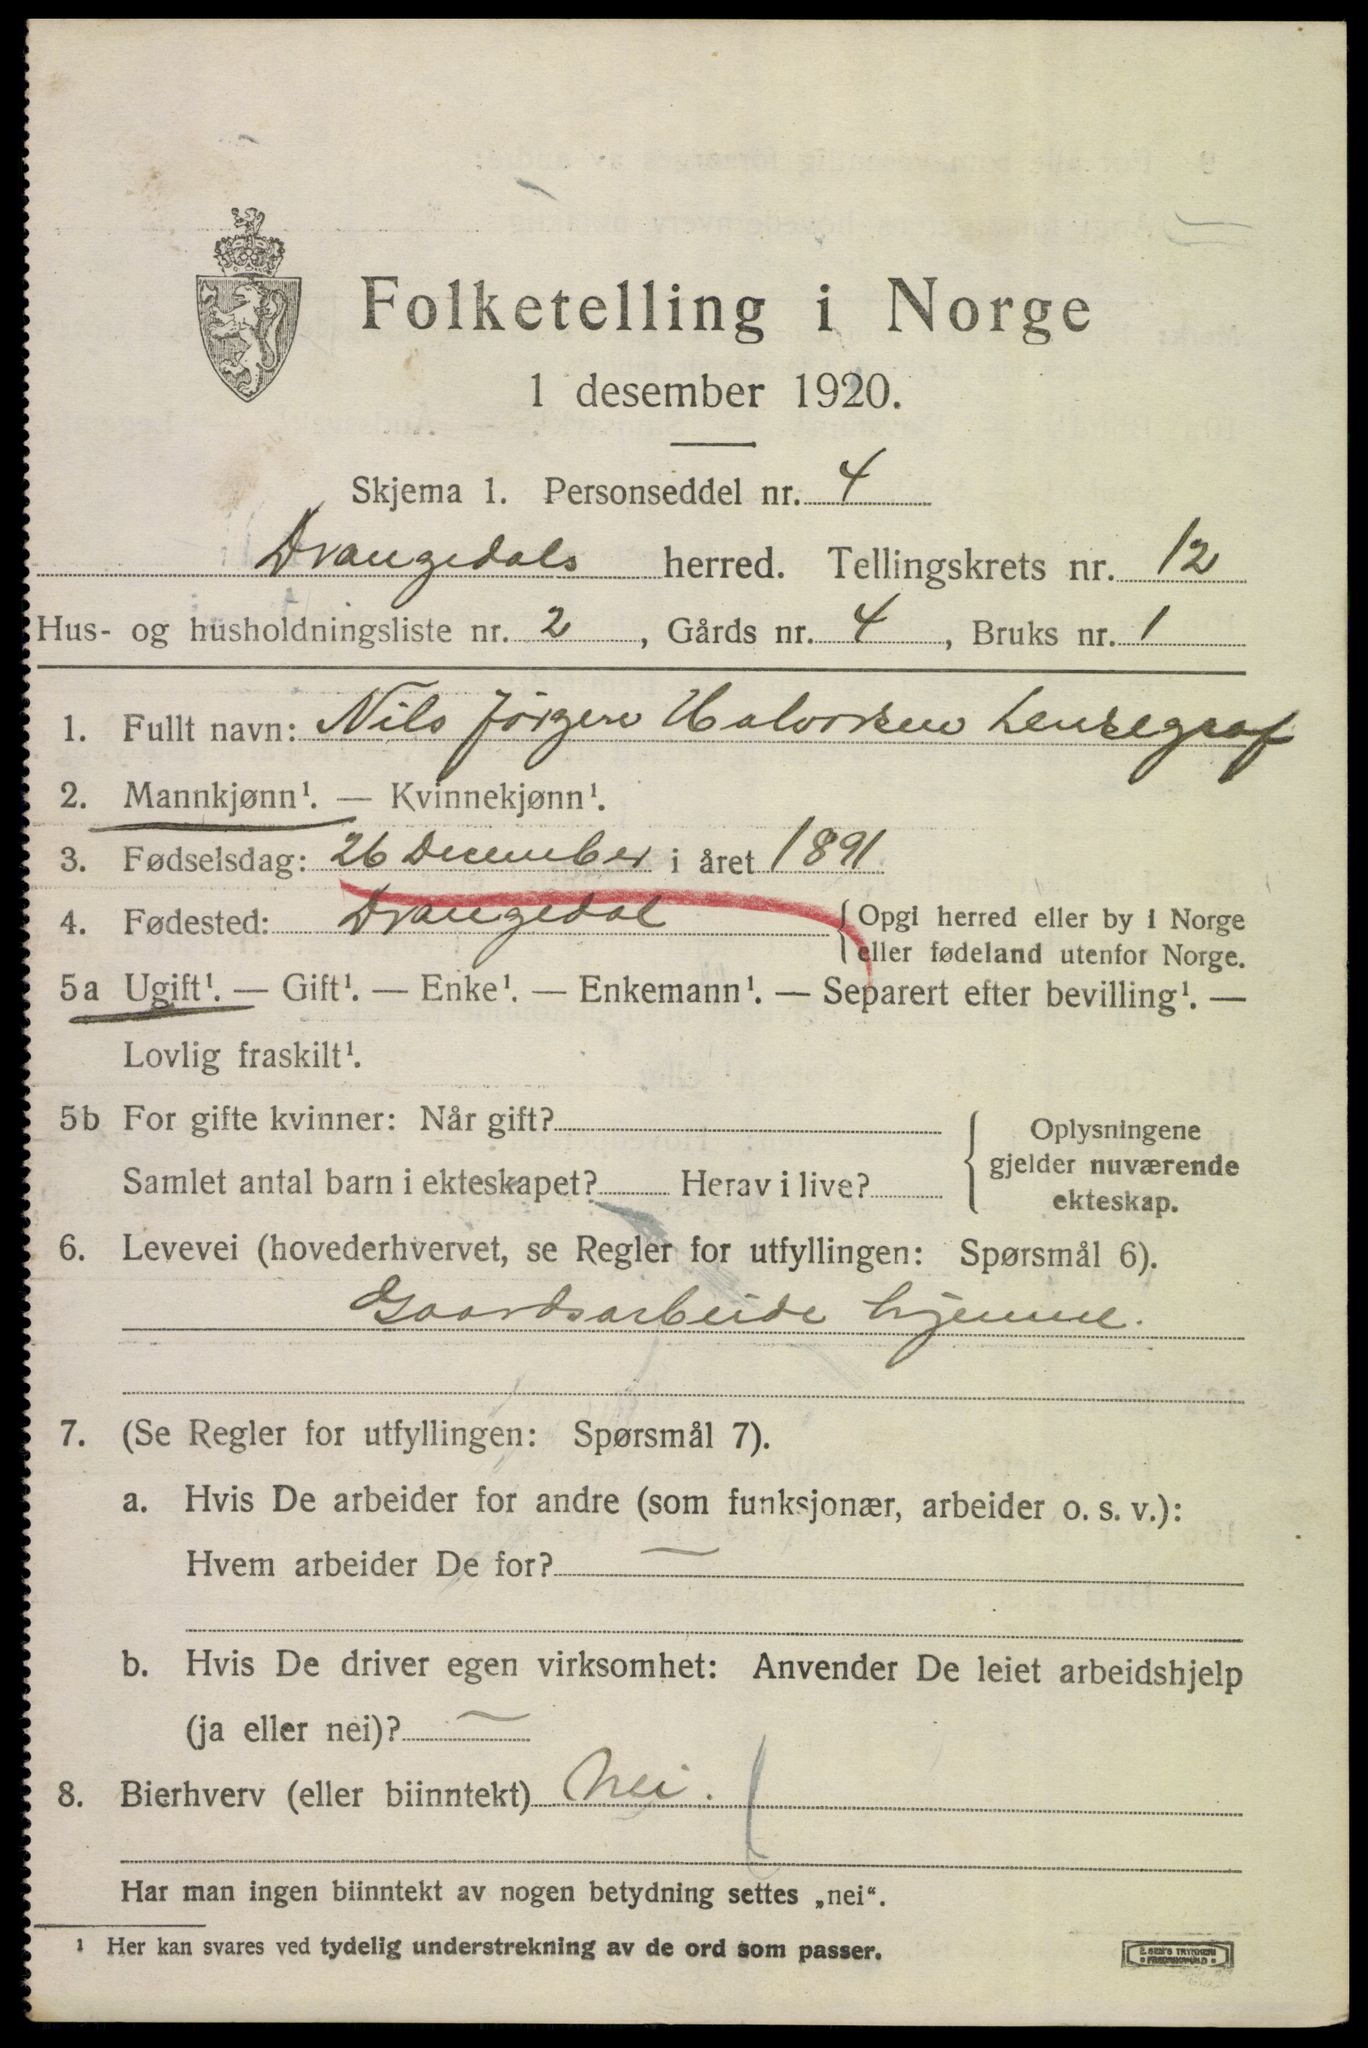 Folketelling i Norge
1 desember 1920.
Skjema 1. Personseddel nr. 4
Drangedals herred. Tellingskrets nr. 12
Hus- og husholdningsliste nr. 2, Gårds nr. 4, Bruks nr. 1
1. Fullt navn: Nils Jörgen Halvorsen
2. Mannkjønn¹. — Kvinnekjønn¹.
3. Fødselsdag: 26 December i året 1891
4. Fødested: Drangedal { Opgi herred eller by i Norge
eller fødeland utenfor Norge.
5a Ugift¹. — Gift¹. — Enke¹. — Enkemann¹. — Separert efter bevilling¹. —
Lovlig fraskilt¹.
5b For gifte kvinner: Når gift?
Samlet antal barn i ekteskapet? Herav i live?
{ Oplysningene
gjelder nuværende
ekteskap.
6. Levevei (hovederhvervet, se Regler for utfyllingen: Spørsmål 6).
Gaardsarbeide hjemme.
7. (Se Regler for utfyllingen: Spørsmål 7).
a. Hvis De arbeider for andre (som funksjonær, arbeider o. s. v.):
Hvem arbeider De for? —
b. Hvis De driver egen virksomhet: Anvender De leiet arbeidshjelp
(ja eller nei)? —
8. Bierhverv (eller biinntekt) Nei.
Har man ingen biinntekt av nogen betydning settes „nei“.
¹ Her kan svares ved tydelig understrekning av de ord som passer.